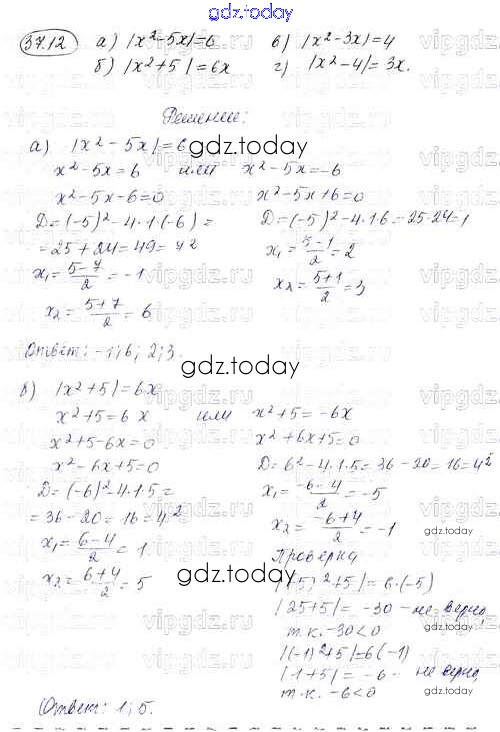 gdz.today
37.12 а) |x²-5x|=6 в) |x²-3x|=4
б) |x²+5|=6x г) |x²-4|=3x.
Решение:
gdz.today
а) |x²-5x|=6
x²-5x=6 или x²-5x=-6
x²-5x-6=0 x²-5x+6=0
D=(-5)²-4·1(-6)= D=(-5)²-4·1·6=25-24=1
=25+24=49=7² x₁=(5-1)/2=2
x₁=(5-7)/2=-1 x₂=(5+1)/2=3
x₂=(5+7)/2=6
Ответ: -1; 6; 2; 3.
gdz.today
б) |x²+5|=6x
x²+5=6x или x²+5=-6x
x²+5-6x=0 x²+6x+5=0
x²-6x+5=0 D=6²-4·1·5=36-20=16=4²
D=(-6)²-4·1·5= x₁=(-6-4)/2=-5
=36-20=16=4² x₂=(-6+4)/2=-1
gdz.today
x₁=(6-4)/2=1 Проверка
x₂=(6+4)/2=5 |(-5)²+5|=6·(-5)
gdz.today
|25+5|=-30 - не верно,
т.к. -30<0
gdz.today
|(-1)²+5|=6(-1)
|1+5|=-6 - не верно,
т.к. -6<0
gdz.today
Ответ: 1; 5.